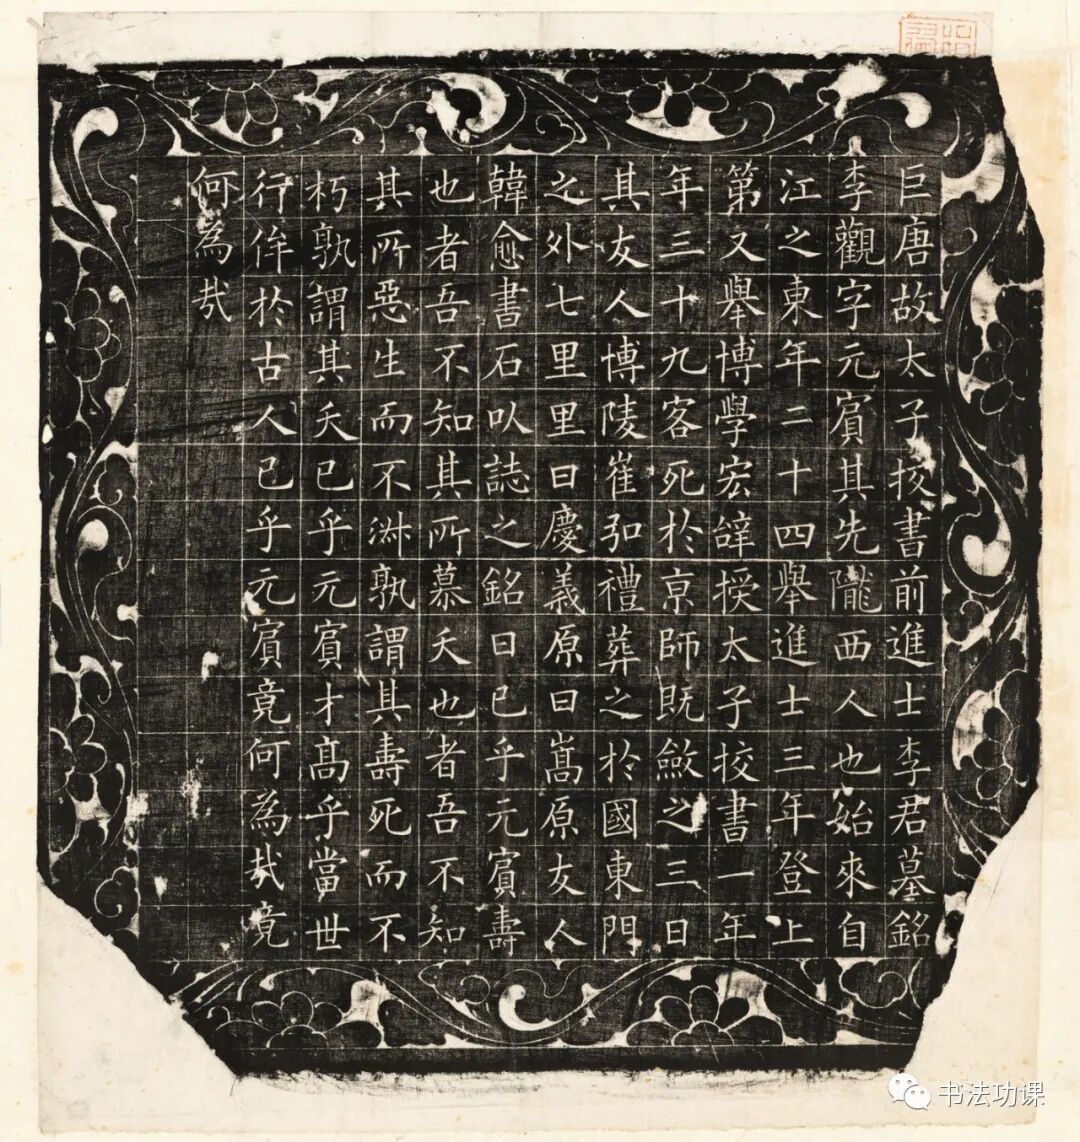 巨唐故太子挍書前進士李君墓銘
李觀字元賓其先隴西人也始來自
江之東年二十四舉進士三年登上
第又舉博學宏辝授太子挍書一年
年三十九客死於亰師既斂之三日
其友人博陵崔弘禮葬之於國東門
之外七里里曰慶義原曰嵩原友人
韓愈書石以誌之銘曰已乎元賓壽
也者吾不知其所慕夭也者吾不知
其所惡生而不淋孰謂其壽死而不
朽孰謂其夭已乎元賓才髙乎當世
行侔於古人已乎元賓竟何為哉竟
何為哉
书法功课